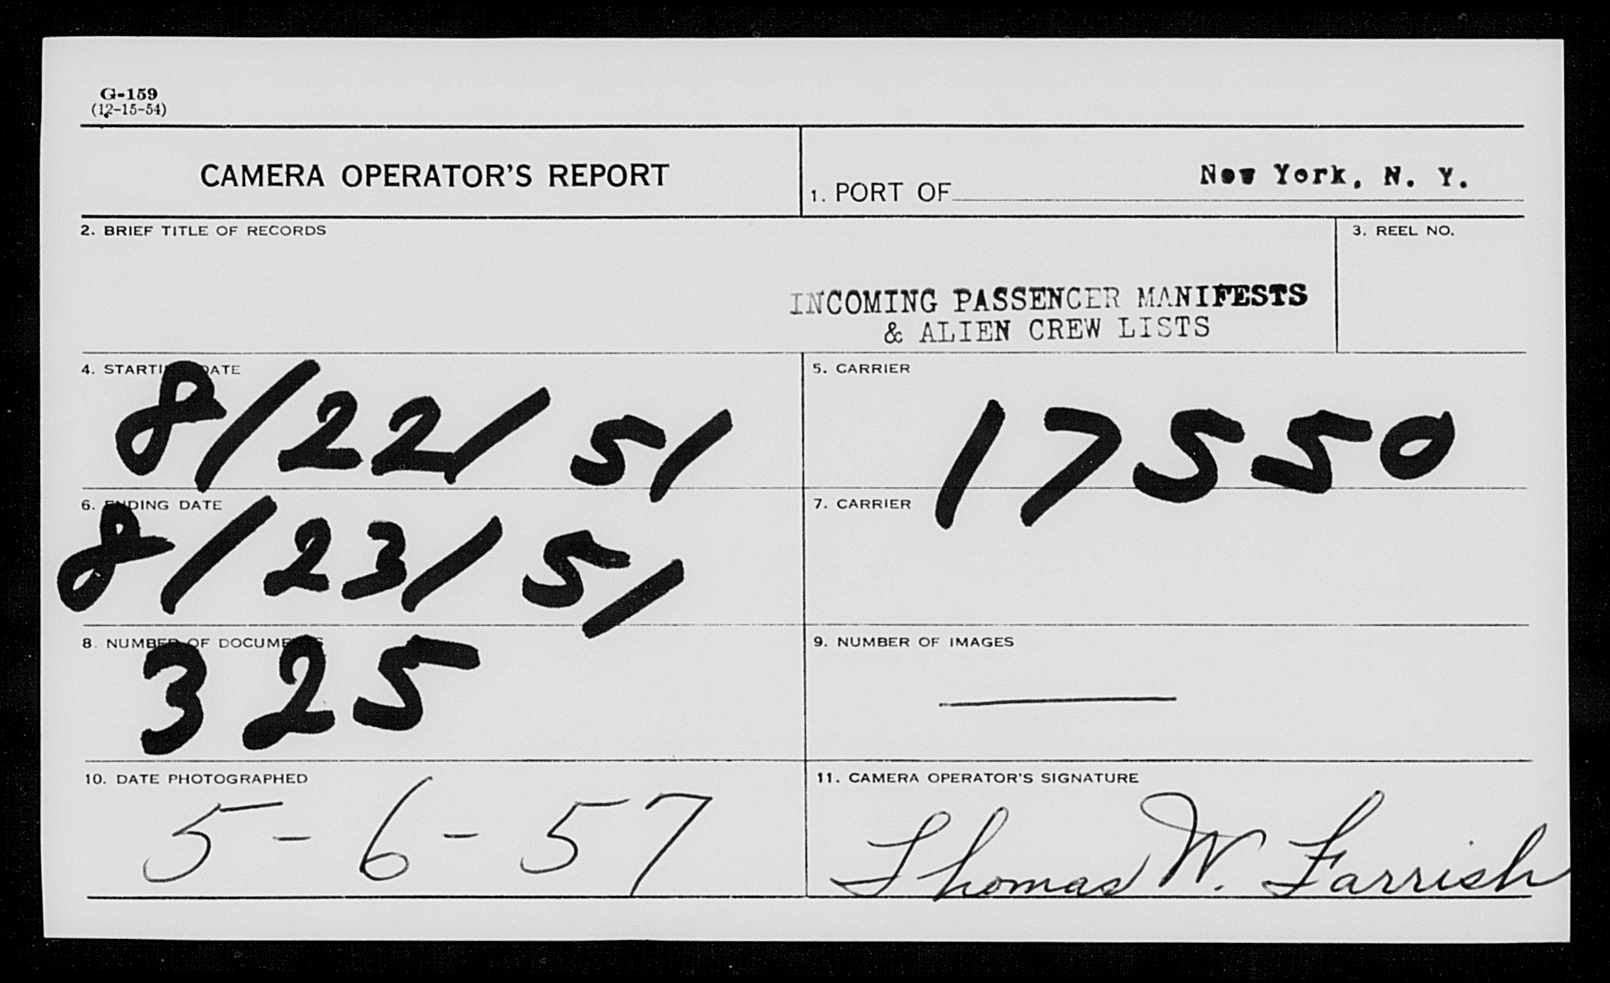 G-159
(12-15-54)
CAMERA OPERATOR'S REPORT
1. PORT OF New York, N. Y.
2. BRIEF TITLE OF RECORDS
3. REEL NO.
INCOMING PASSENGER MANIFESTS
& ALIEN CREW LISTS
4. STARTING DATE
5. CARRIER
8/22/51
17550
6. ENDING DATE
7. CARRIER
8/23/51
8. NUMBER OF DOCUMENTS
9. NUMBER OF IMAGES
325
10. DATE PHOTOGRAPHED
11. CAMERA OPERATOR'S SIGNATURE
5-6-57
Thomas W. Farrish